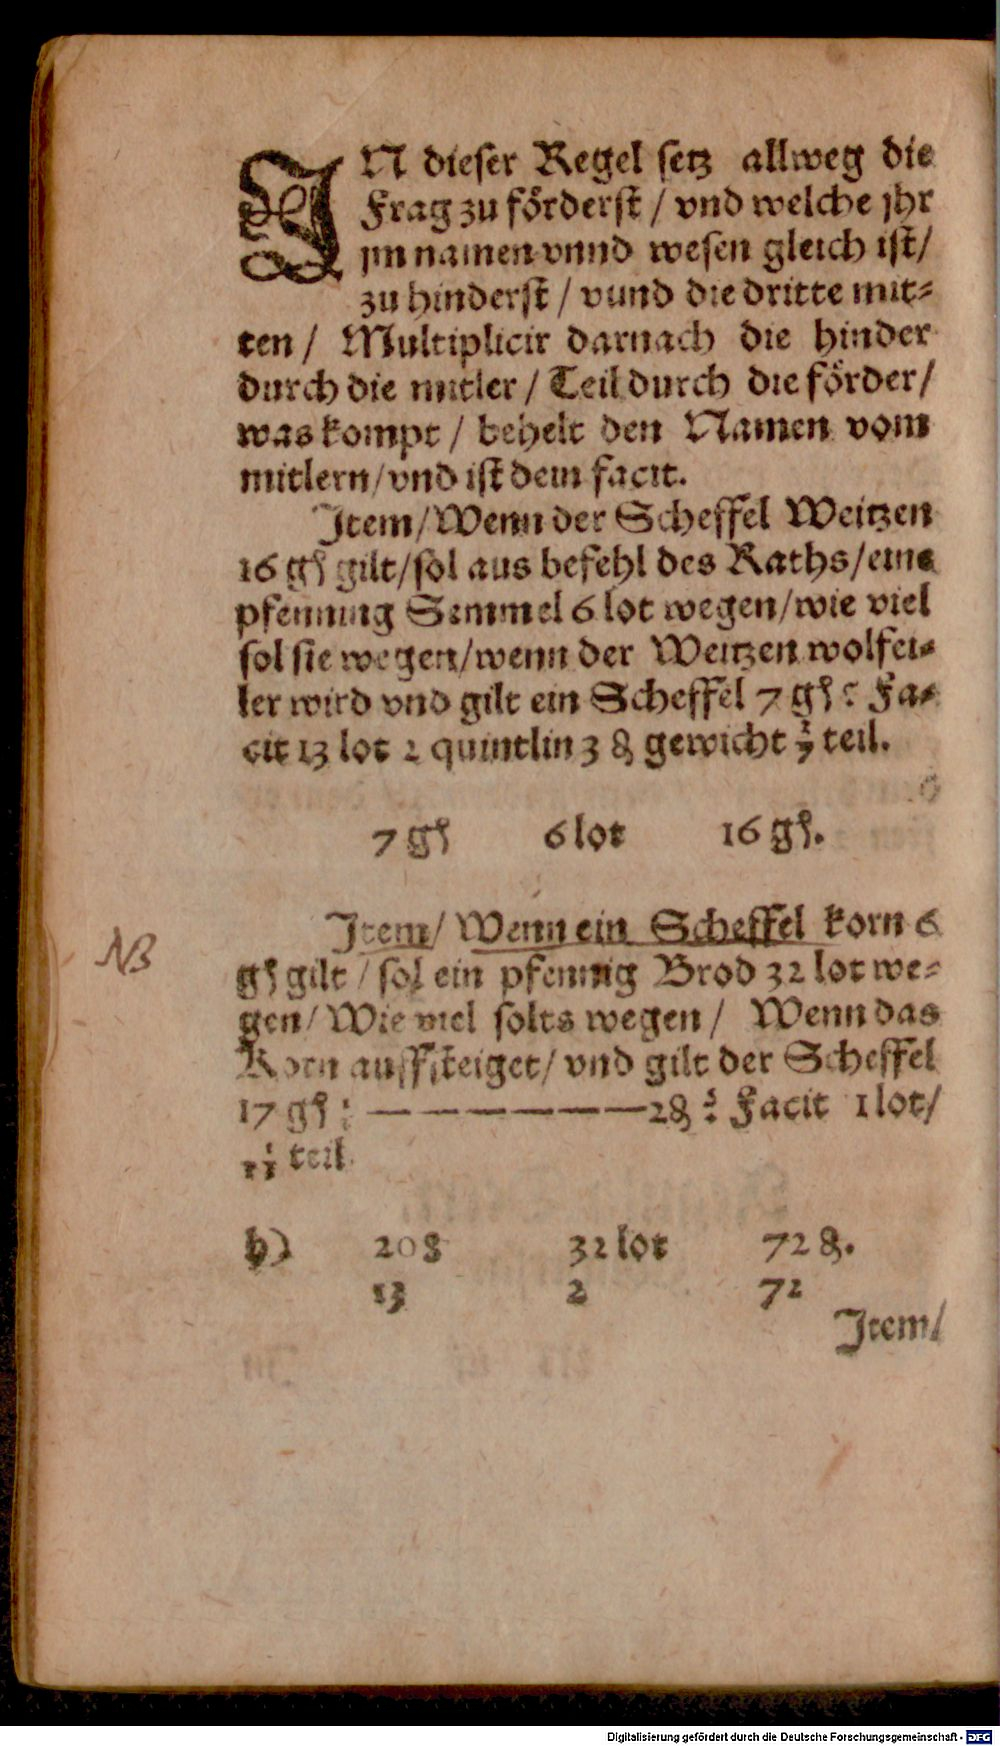 JN dieser Regel setz allweg die
Frag zu förderst / vnd welche jhr
jm namen vnnd wesen gleich ist/
zu hinderst / vund die dritte mit⸗
ten / Multiplicir darnach die hinder
durch die mitler / Teil durch die förder/
was kompt / behelt den Namen vom
mitlern/vnd ist dein facit.
Jtem/Wenn der Scheffel Weitzen
16 gꝭ gilt/sol aus befehl des Raths/eine
pfenning Semmel 6 lot wegen/wie viel
sol sie wegen/wenn der Weitzen wolfei⸗
ler wird vnd gilt ein Scheffel 7 gꝭ? Fa⸗
cit 13 lot 2 quintlin 3 ₰ gewicht 3/7 teil.
7 gꝭ 6 lot 16 gꝭ.
NB
Jtem/ Wenn ein Scheffel korn 6
gꝭ gilt / sol ein pfennig Brod 32 lot we⸗
gen/ Wie viel solts wegen / Wenn das
Korn auffsteiget/ vnd gilt der Scheffel
17 gꝭ : — — — — — — — 2₰ ? Facit lot/
teil.
h) 208 32 lot 72 ₰.
13 2 72
Jtem/
Digitalisierung gefördert durch die Deutsche Forschungsgemeinschaft - DFG